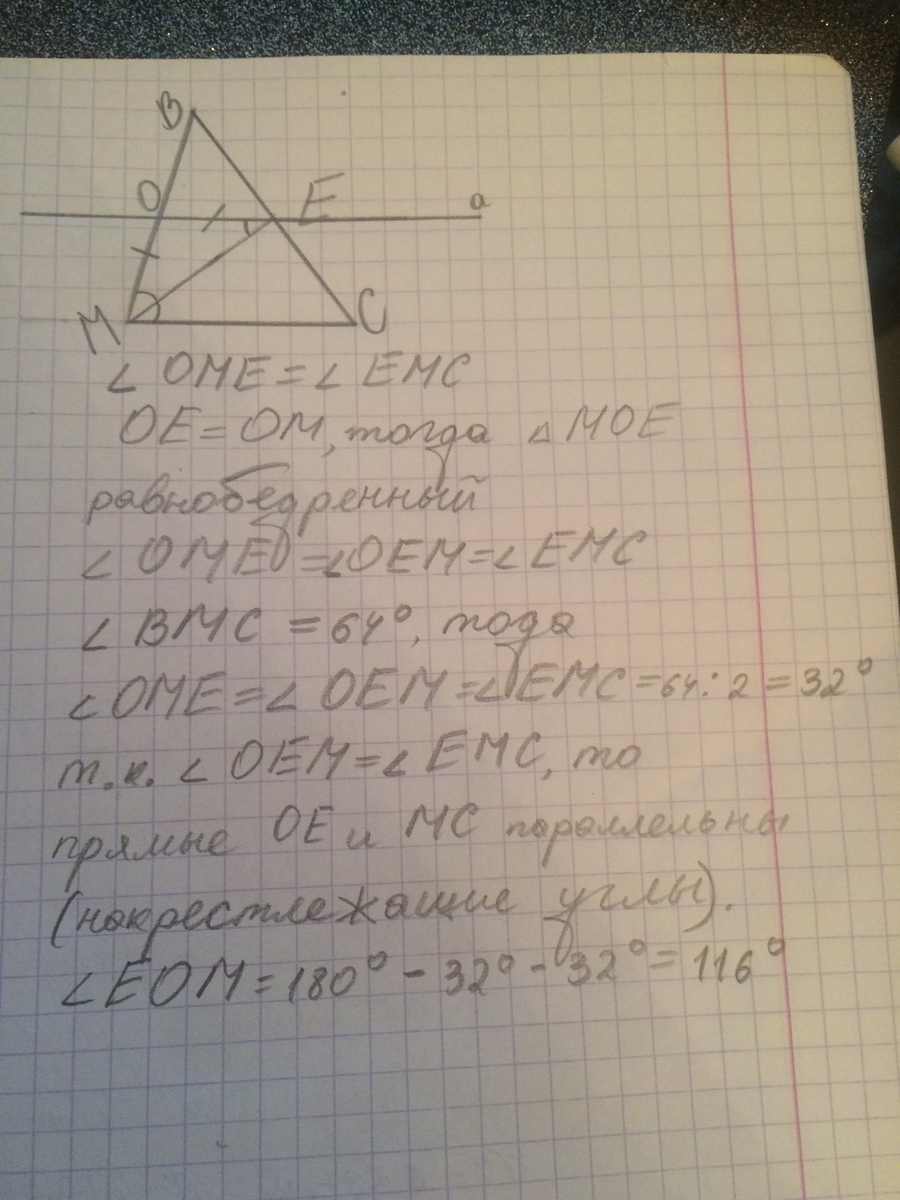 B
O E a
M C
∠ OME = ∠ EMC
OE = OM, тогда △ MOE
равнобедренный
∠ OME = ∠OEM = ∠ EMC
∠ BMC = 64°, тода
∠OME = ∠ OEM = ∠ EMC = 64 : 2 = 32°
т.к. ∠ OEM = ∠ EMC, то
прямые OE и MC параллельны
(накрестлежащие углы).
∠EOM = 180° - 32° - 32° = 116°